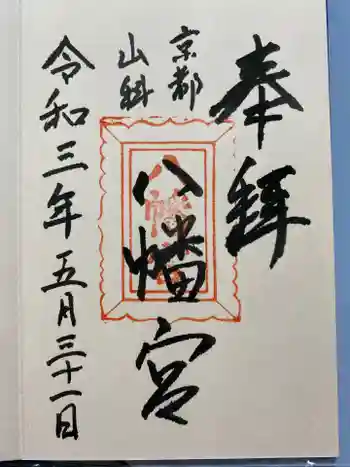 奉拝
京都
山科
八幡宮
八幡宮
令和三年五月三十一日